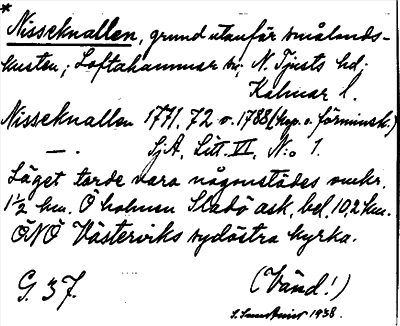 *
Nisseknallen, grund utanför smålands-
kusten; Loftahammar sn; N. Tjusts hd;
Kalmar l.
Nisseknallen 1771, 72 o. 1788 (kop. o. förminsk.)
—. SjA, Litt. VI, N:o 1.
Läget torde vara någonstädes omkr.
1½ km. Ö holmen Sladö ask, bel. 10,2 km.
ÖNÖ Västerviks sydöstra kyrka.
G. 37. (Vänd!)
1938.